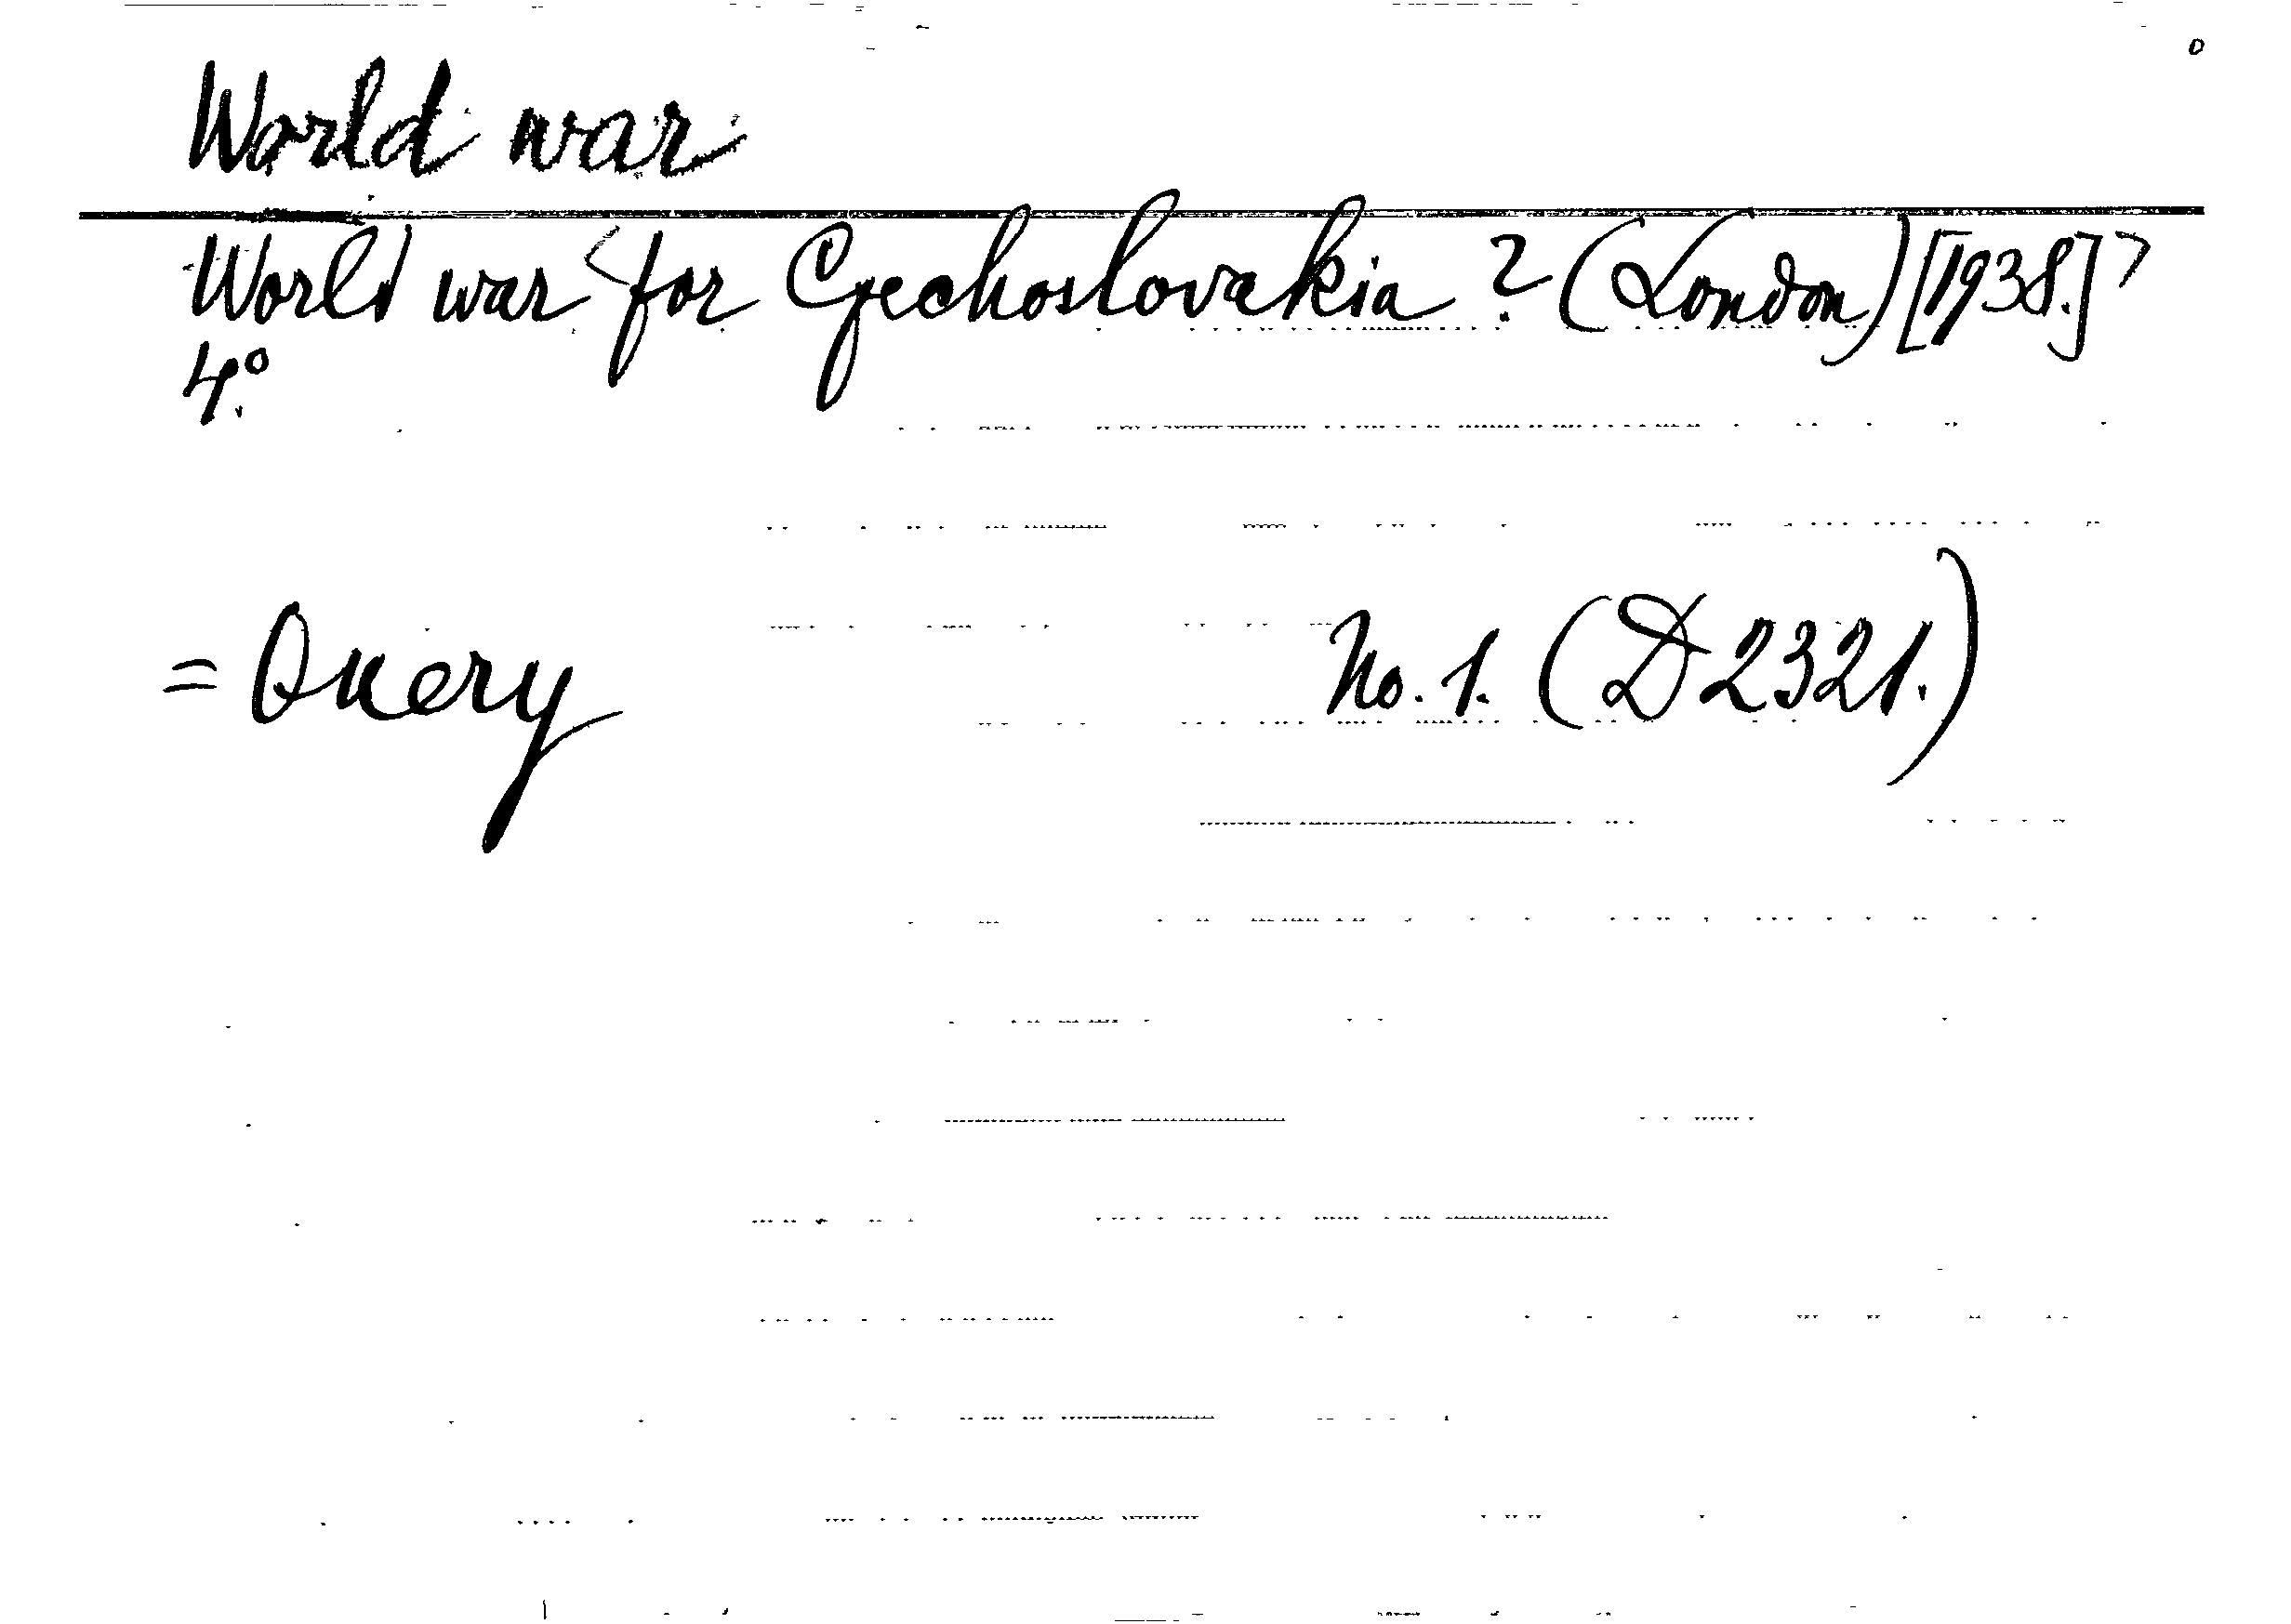 World war
World war <for Czechoslovakia? (London) [1938.]>
4.°
= Query No. 1. (D 2321.)